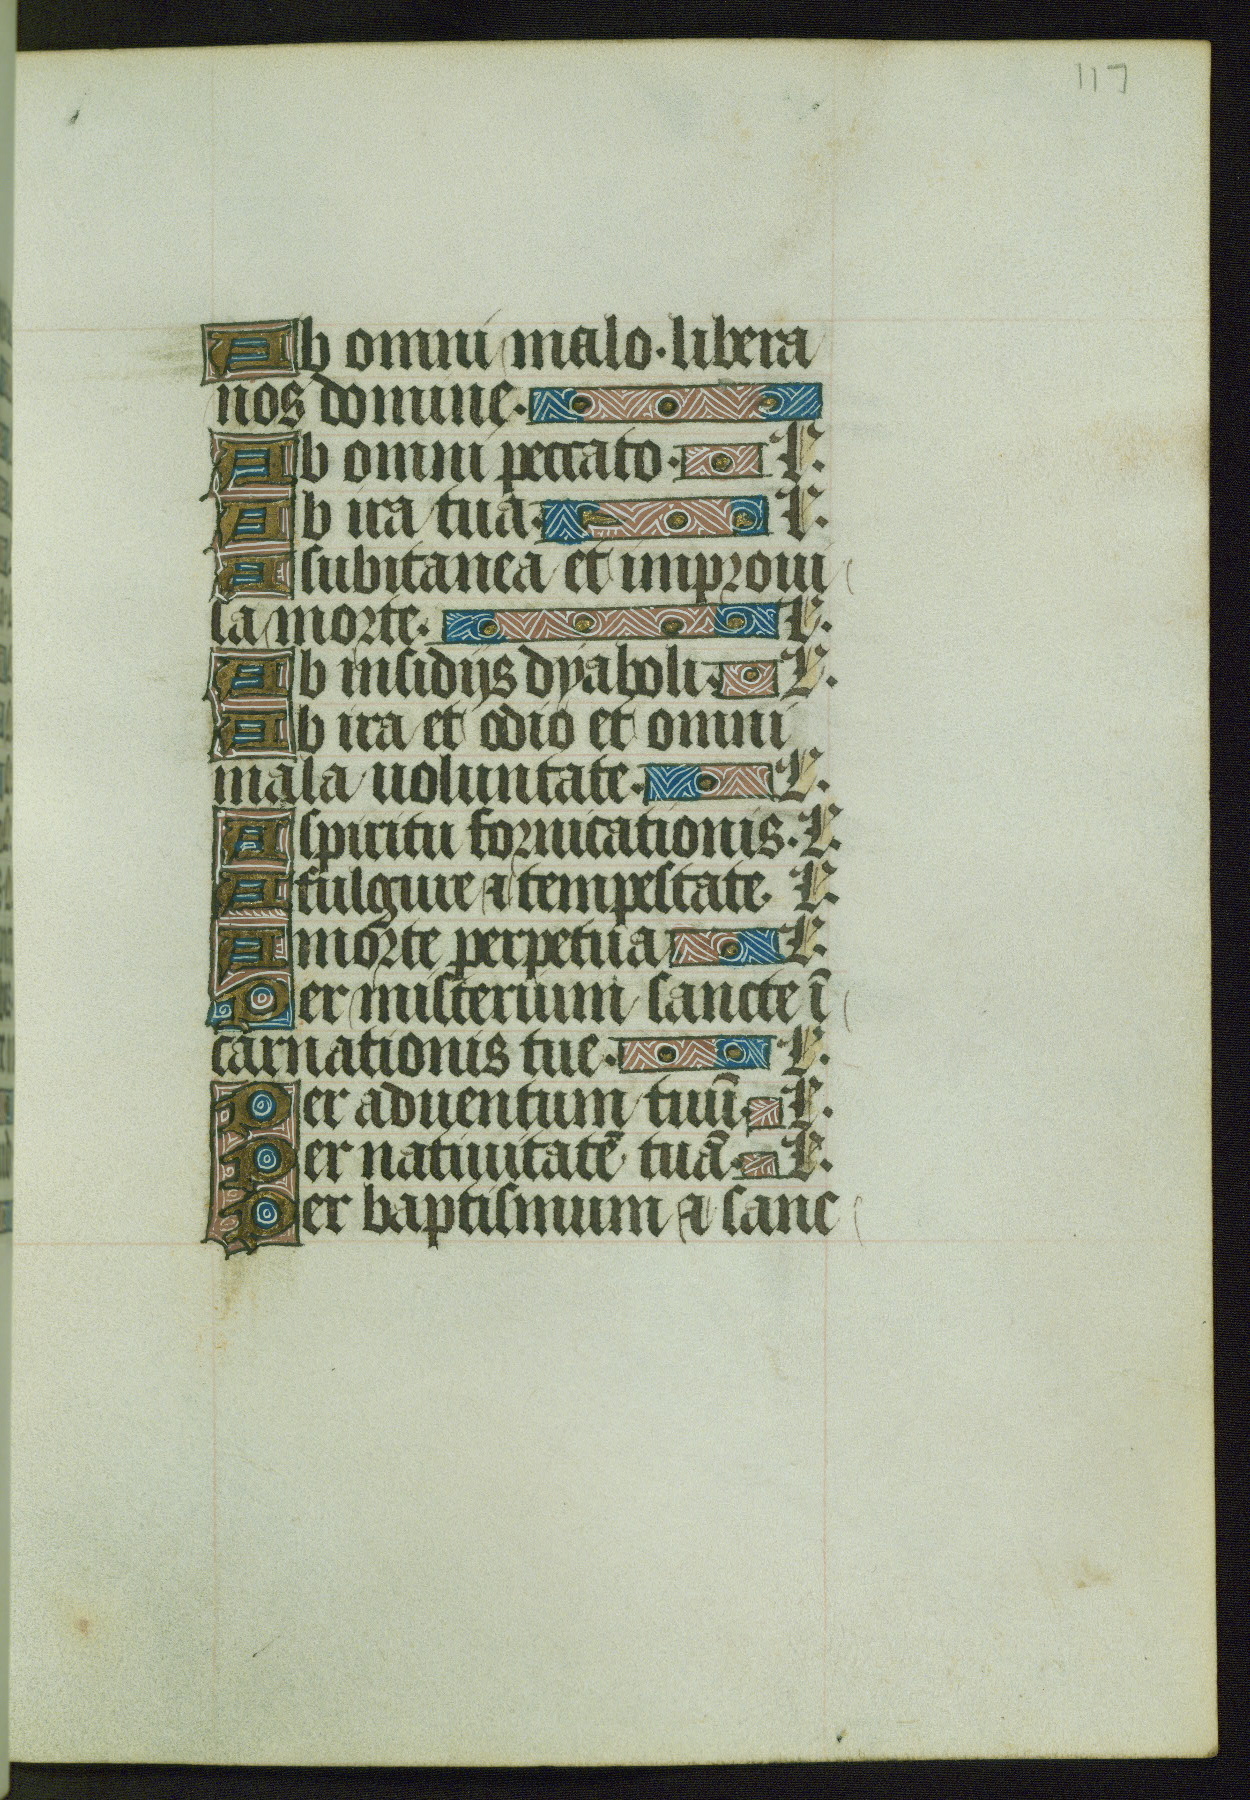 117
Ab omni malo. libera
nos domine.
Ab omni peccato. L.
Ab ira tua. L.
A subitanea et improui
sa morte. L.
Ab insidijs dyaboli. L.
Ab ira et odio et omni
mala uoluntate. L.
A spiritu fornicationis. L.
A fulgure ⁊ tempestate. L.
A morte perpetua L.
Per misterium sancte ī
carnationis tue. L.
Per aduentum tuū. L.
Per natiuitatē tuā. L.
Per baptismum ⁊ sanc